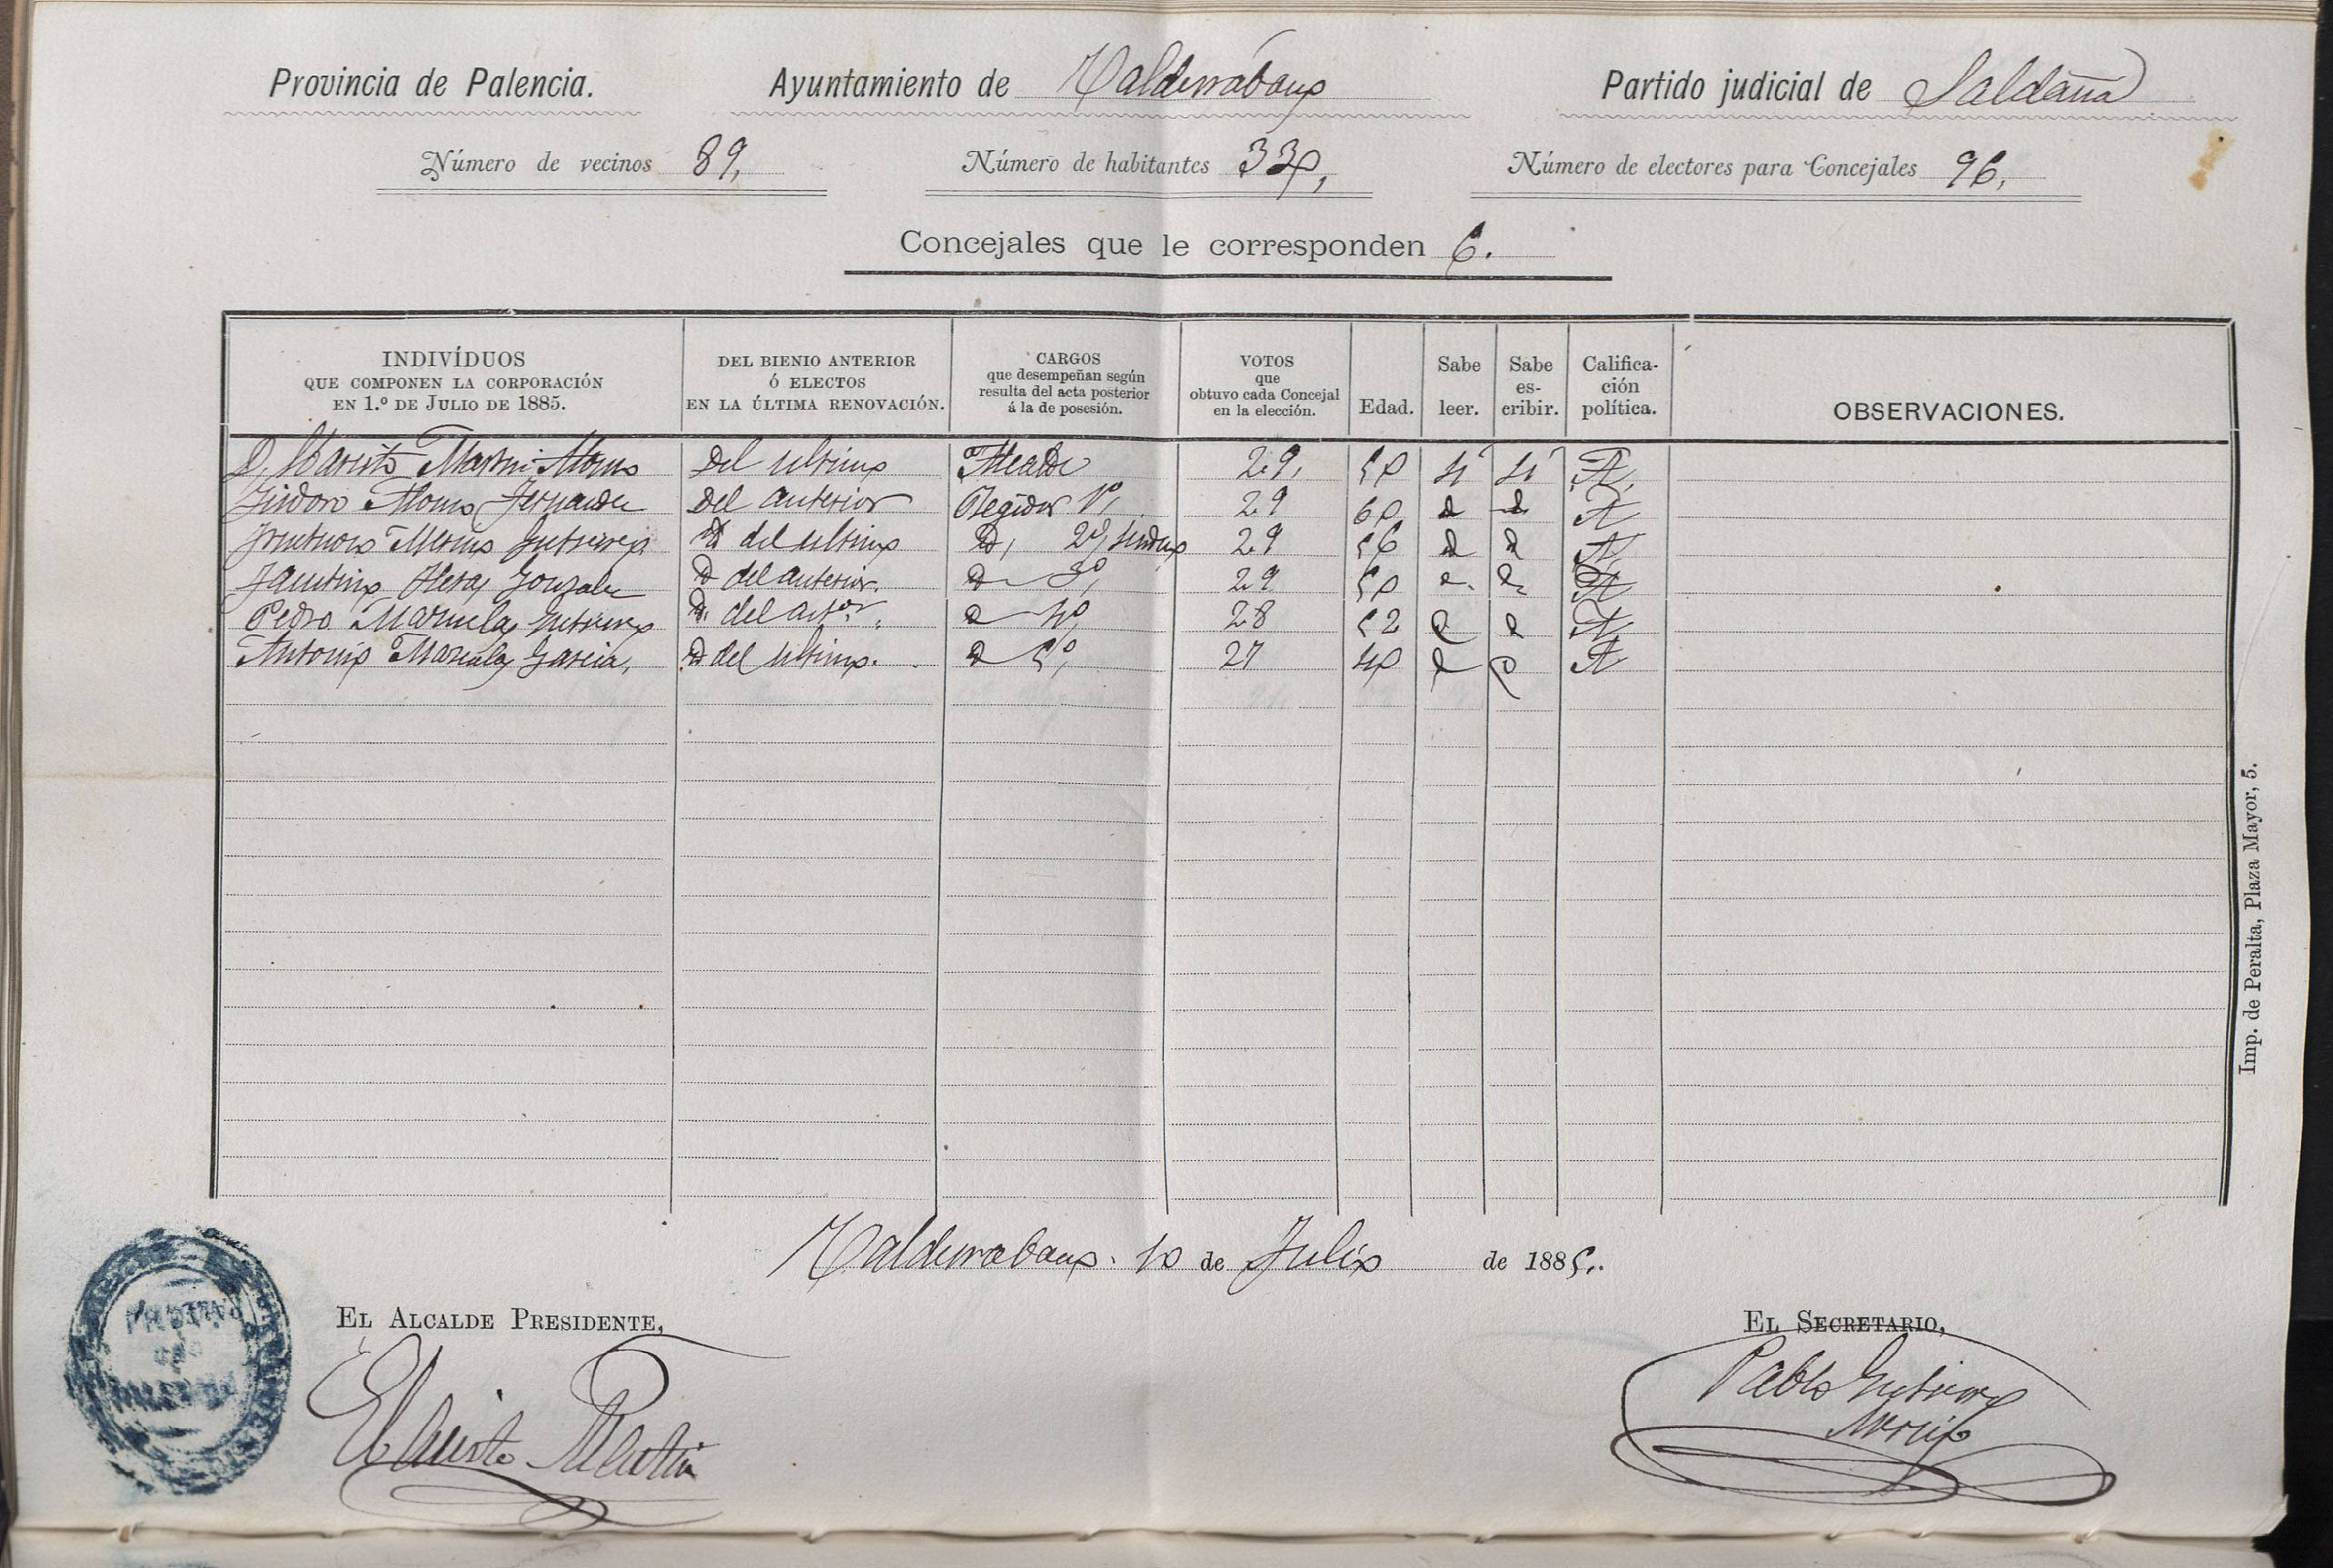 Provincia de Palencia. Ayuntamiento de Valderrábano Partido judicial de Saldaña
Número de vecinos 89, Número de habitantes 330, Número de electores para Concejales 96,
Concejales que le corresponden 6.
INDIVÍDUOS QUE COMPONEN LA CORPORACIÓN EN 1.º DE JULIO DE 1885.
DEL BIENIO ANTERIOR Ó ELECTOS EN LA ÚLTIMA RENOVACIÓN.
CARGOS que desempeñan según resulta del acta posterior á la de posesión.
VOTOS que obtuvo cada Concejal en la elección.
Edad.
Sabe leer.
Sabe es-cribir.
Califica-ción política.
OBSERVACIONES.
D. Martin Alonso Del ultimo Alcalde 29, 50 si si A,
Isidoro Alonso Fernandez Del anterior Regidor 1º, 29 60 d d A
Merino Gutierrez d del ultimo d, 2º, sindico 29 56 d d A,
Faustino Gonzalez d del anterior. d 3º, 29 50 A
Pedro Mazuelas Gutierrez d. del antor. d 4º, 28 52 A,
Antonio Mazuelas Garcia, d del ultimo. d 5º, 27 40 A
Imp. de Peralta, Plaza Mayor, 5.
Valderrabano. 10 de Julio de 1885.
EL ALCALDE PRESIDENTE, EL SECRETARIO,
Martin Pablo Gutierrez
Merino